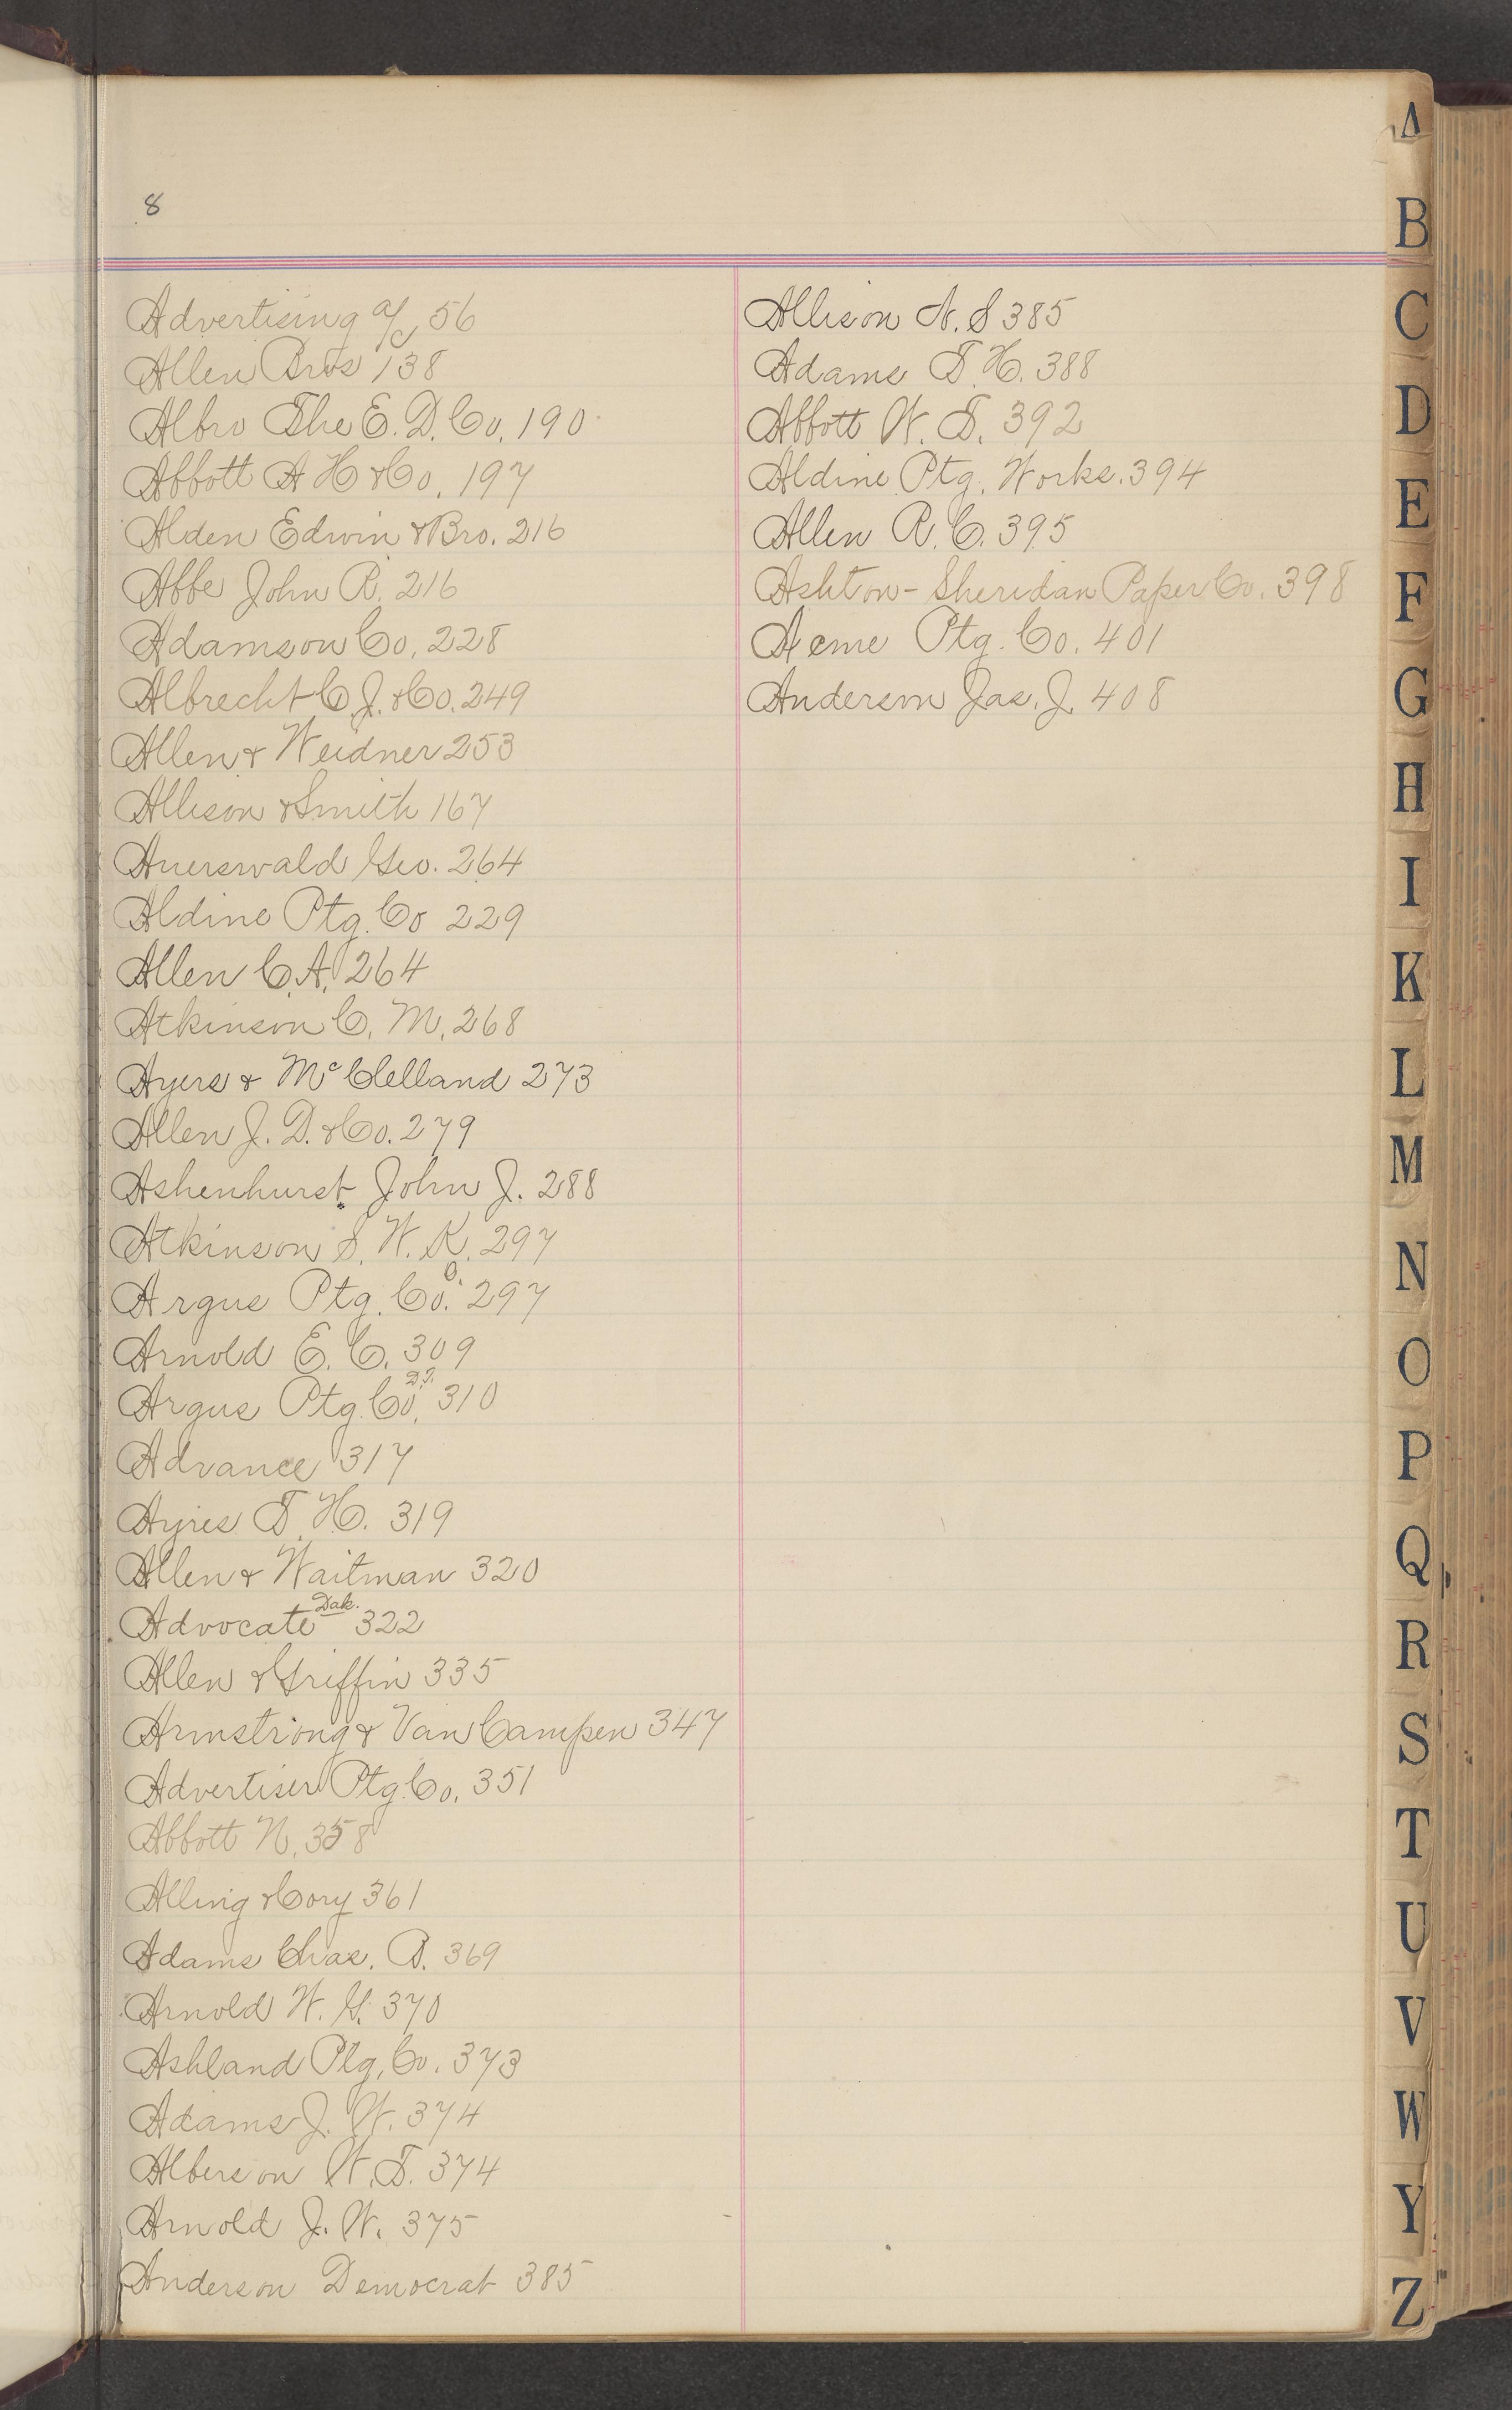 8
Advertising a/c 56
Allen Bros 138
Albro The E. D. Co. 190
Abbott A H & Co. 197
Alden Edwin & Bro. 216
Abbe John R. 216
Adamson Co. 228
Albrecht C. J. & Co. 249
Allen & Weidner 253
Allison & Smith 167
Auerswald Geo. 264
Aldine Ptg. Co 229
Allen C. A. 264
Atkinson C. M. 268
Ayers & McClelland 273
Allen J. D. & Co. 279
Ashenhurst John J. 288
Atkinson S. W. K. 297
Argus Ptg. Co. O. 297
Arnold E. C. 309
Argus Ptg. Co. 310
Advance 317
Ayres T. H. 319
Allen & Waitman 320
Advocate Dak. 322
Allen & Griffin 335
Armstrong & Van Campen 347
Advertiser Ptg Co. 351
Abbott N. 358
Alling & Cory 361
Adams Chas. P. 369
Arnold W. G. 370
Ashland Ptg. Co. 373
Adams J. W. 374
Alberson W. T. 374
Arnold J. W. 375
Anderson Democrat 385
Allison N. S 385
Adams T. H. 388
Abbott W. T. 392
Aldine Ptg. Works. 394
Allen R. C. 395
Ashton-Sheridan Paper Co. 398
Acme Ptg. Co. 401
Anderson Jas. J. 408
A
B
C
D
E
F
G
H
I
K
L
M
N
O
P
Q
R
S
T
U
V
W
Y
Z